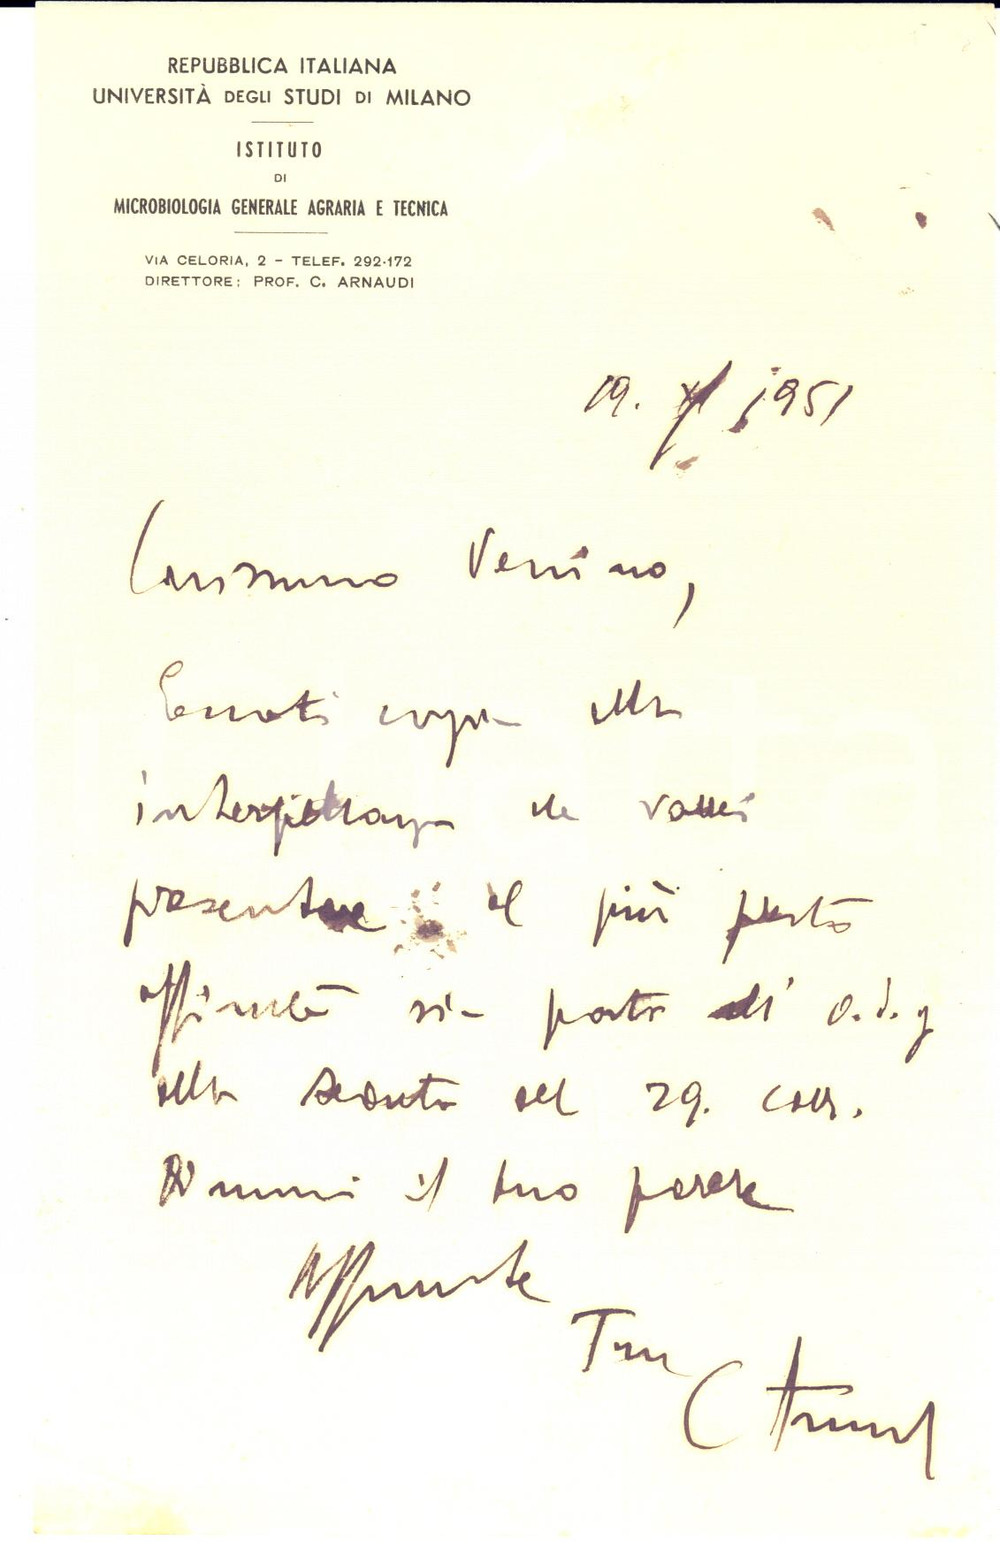 REPUBBLICA ITALIANA
UNIVERSITÀ DEGLI STUDI DI MILANO
ISTITUTO
DI
MICROBIOLOGIA GENERALE AGRARIA E TECNICA
VIA CELORIA, 2 - TELEF. 292-172
DIRETTORE: PROF. C. ARNAUDI
19. XI 1951
Carissimo Venino,
Eccoti copia della
interpellanza che vorrei
presentare al più presto
affinchè sia posta all' o.d.g
della seduta del 29. corr.
Dimmi il tuo parere
Affmente
Tuo
C Arnaudi